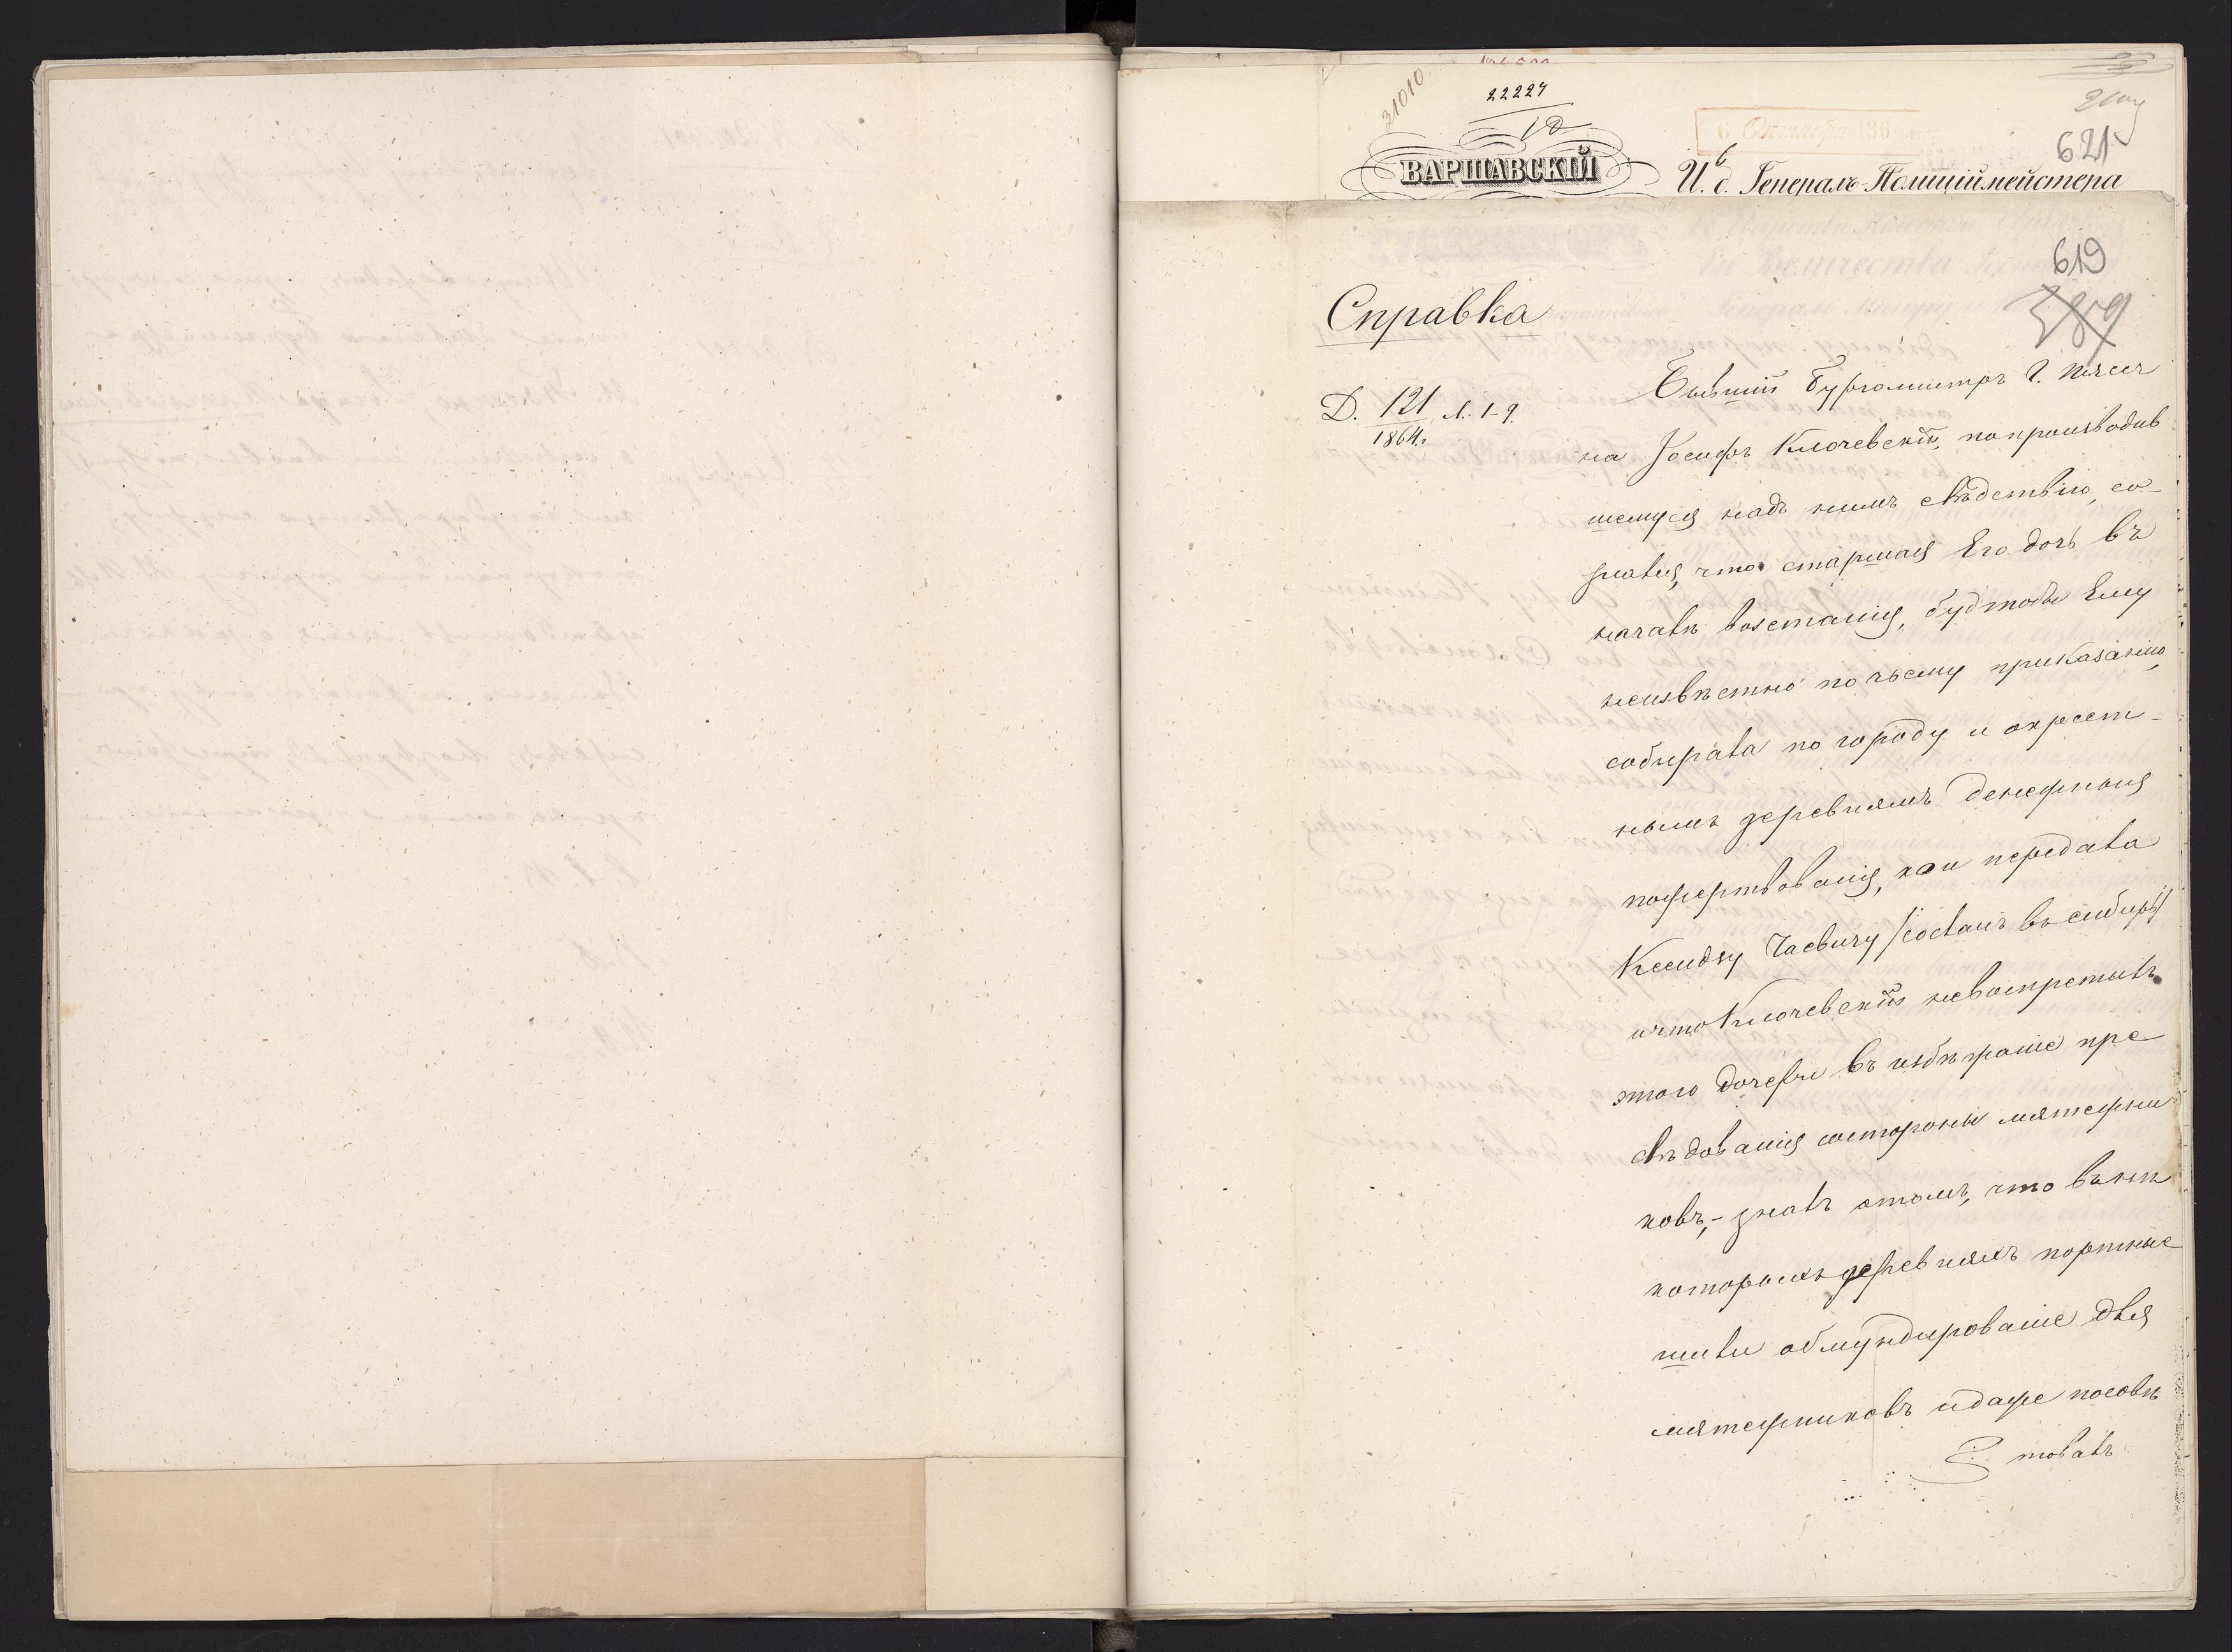 21010
22224
10
6 Октября 186
621
ВАРШАВСКІЙ
И. д. Генералъ-Полиціймейстера
619
589
Справка
Д. 121 л. 1-9.
1864 г.
Бывшій Бургомистръ г. Пясеч
на Іосифъ Клочевскій, по производив
шемуся надъ нимъ слѣдствію, со-
знался, что старшая Его дочь въ
началѣ возстанія, будтобы Ему
неизвѣстно по чьему приказанію,
собирала по городу и окрест-
нымъ деревнямъ денежныя
пожертвованія, кои передала
Ксендзу Чаевичу /сосланъ въ сибирь/
ичто Клочевскій невоспретилъ
этого дочери въ избѣжаніе пре
слѣдованія состороны мятежни
ковъ,- зналъ отомъ, что вънѣ
которыхъ деревняхъ портные
шили обмундированіе для
мятежниковъ идаже посовѣ
товалъ